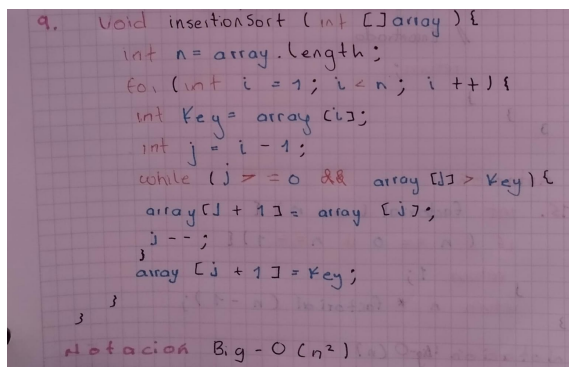 9. void insertionSort (int []array){
int n= array.length;
for (int i = 1; i < n; i ++){
int Key= array [i];
int j = i - 1;
while (j > = 0 && array [J] > Key){
array[J + 1]= array [j];
j--;
}
array [j + 1] = Key;
}
}
Notacion Big-O (n²)